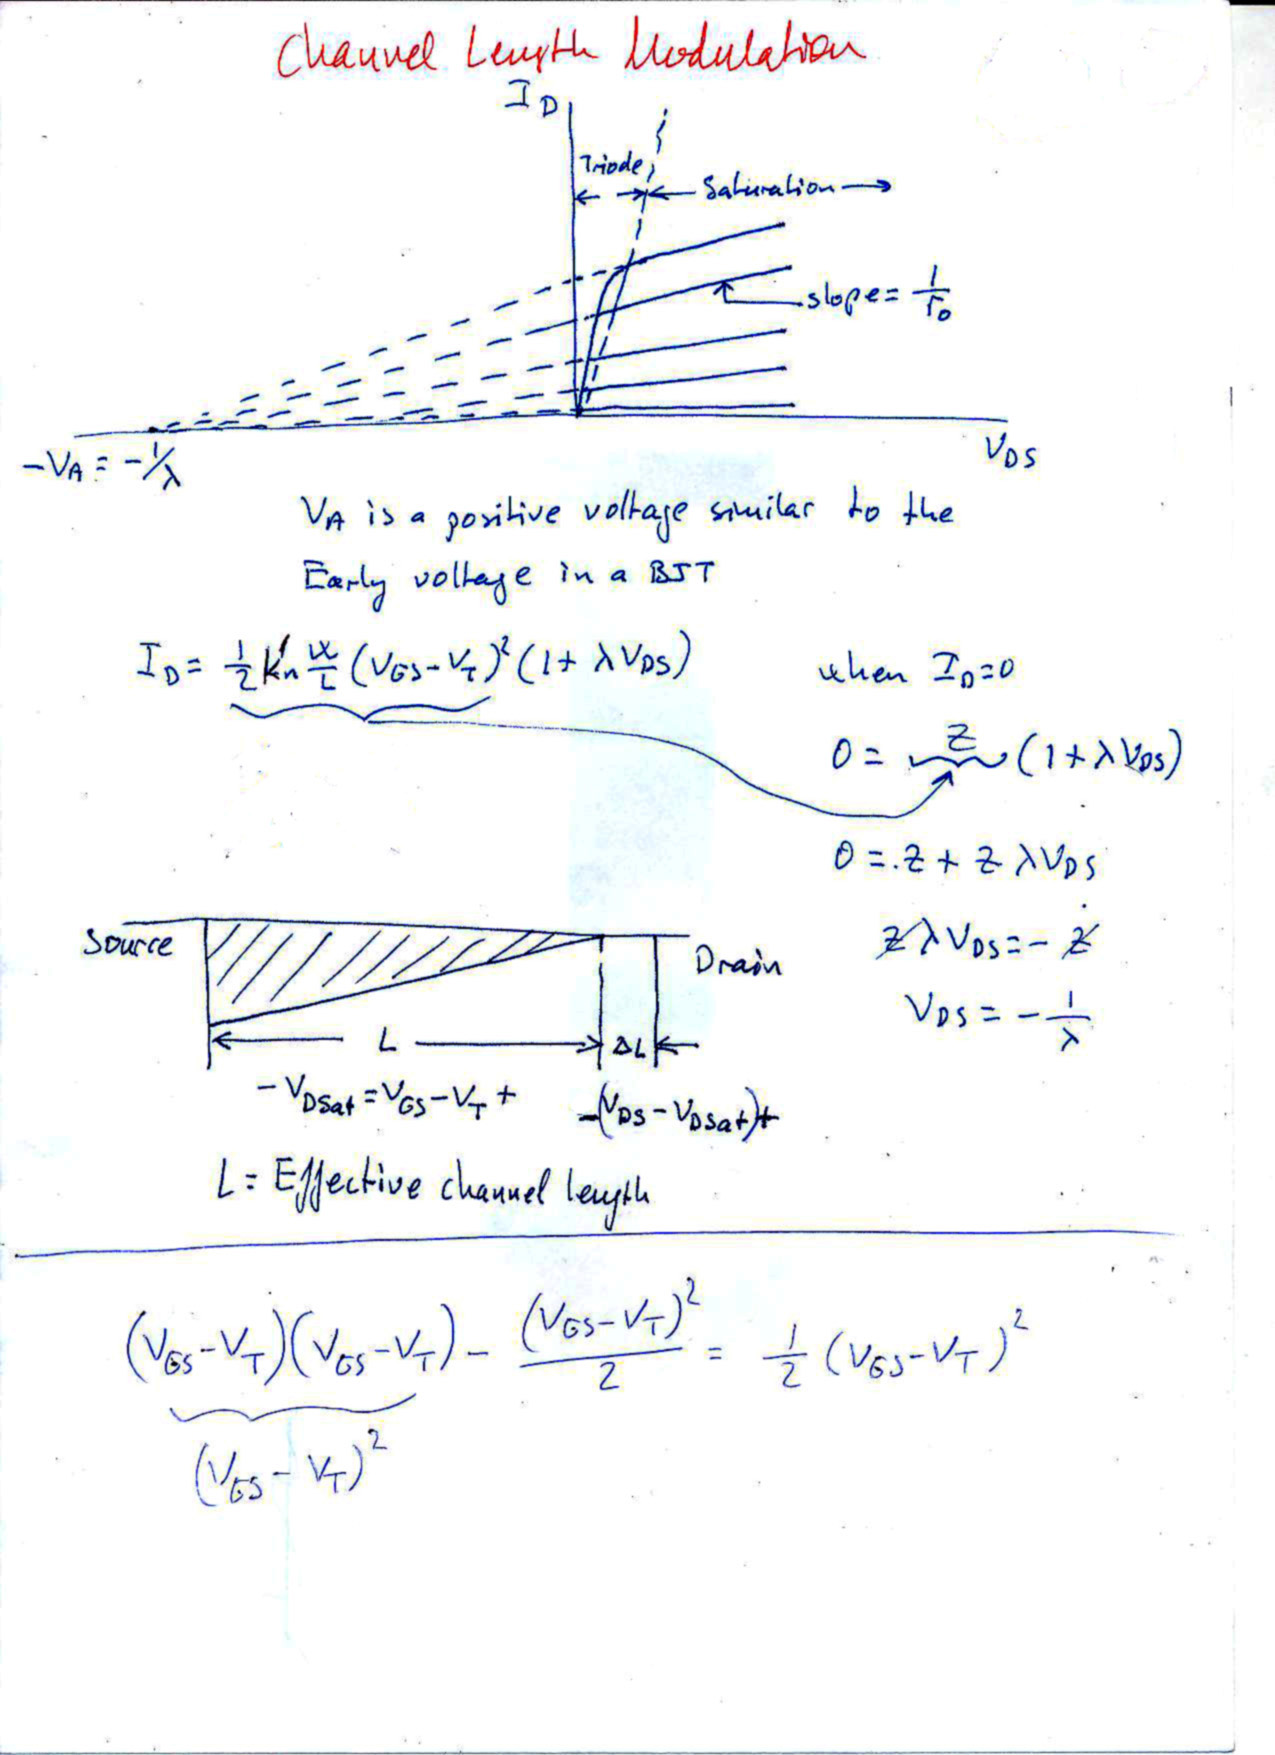 Channel Length Modulation
I_D
Triode
Saturation
slope = 1/r_o
-V_A = -1/λ
V_DS
V_A is a positive voltage similar to the
Early voltage in a BJT
I_D = 1/2 k'_n W/L (V_GS - V_T)² (1 + λV_DS)
when I_D = 0
0 = Z (1 + λV_DS)
0 = Z + Z λV_DS
Z λV_DS = - Z
V_DS = - 1/λ
Source
Drain
L
ΔL
- V_DSat = V_GS - V_T +
-(V_DS - V_DSat)+
L = Effective channel length
(V_GS - V_T)(V_GS - V_T) - (V_GS - V_T)²/2 = 1/2 (V_GS - V_T)²
(V_GS - V_T)²